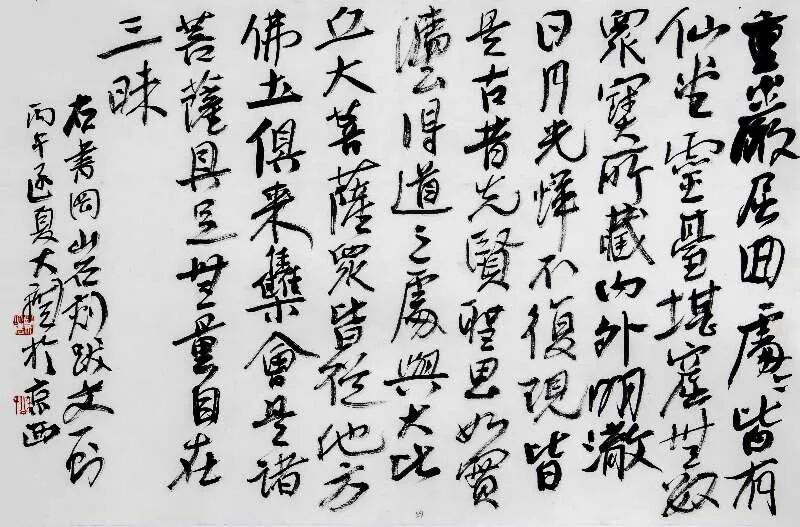 重巖屈曲處處皆有
仙堂靈臺堪窟無數
眾寶所藏內外明澈
日月光暉不復現皆
是古昔先賢聖思如實
得道之處與大比
丘大菩薩眾皆從他方
佛土俱來集會是諸
菩薩具足無量自在
三昧
右書岡山石刻跋文一則
丙午夏大於京西